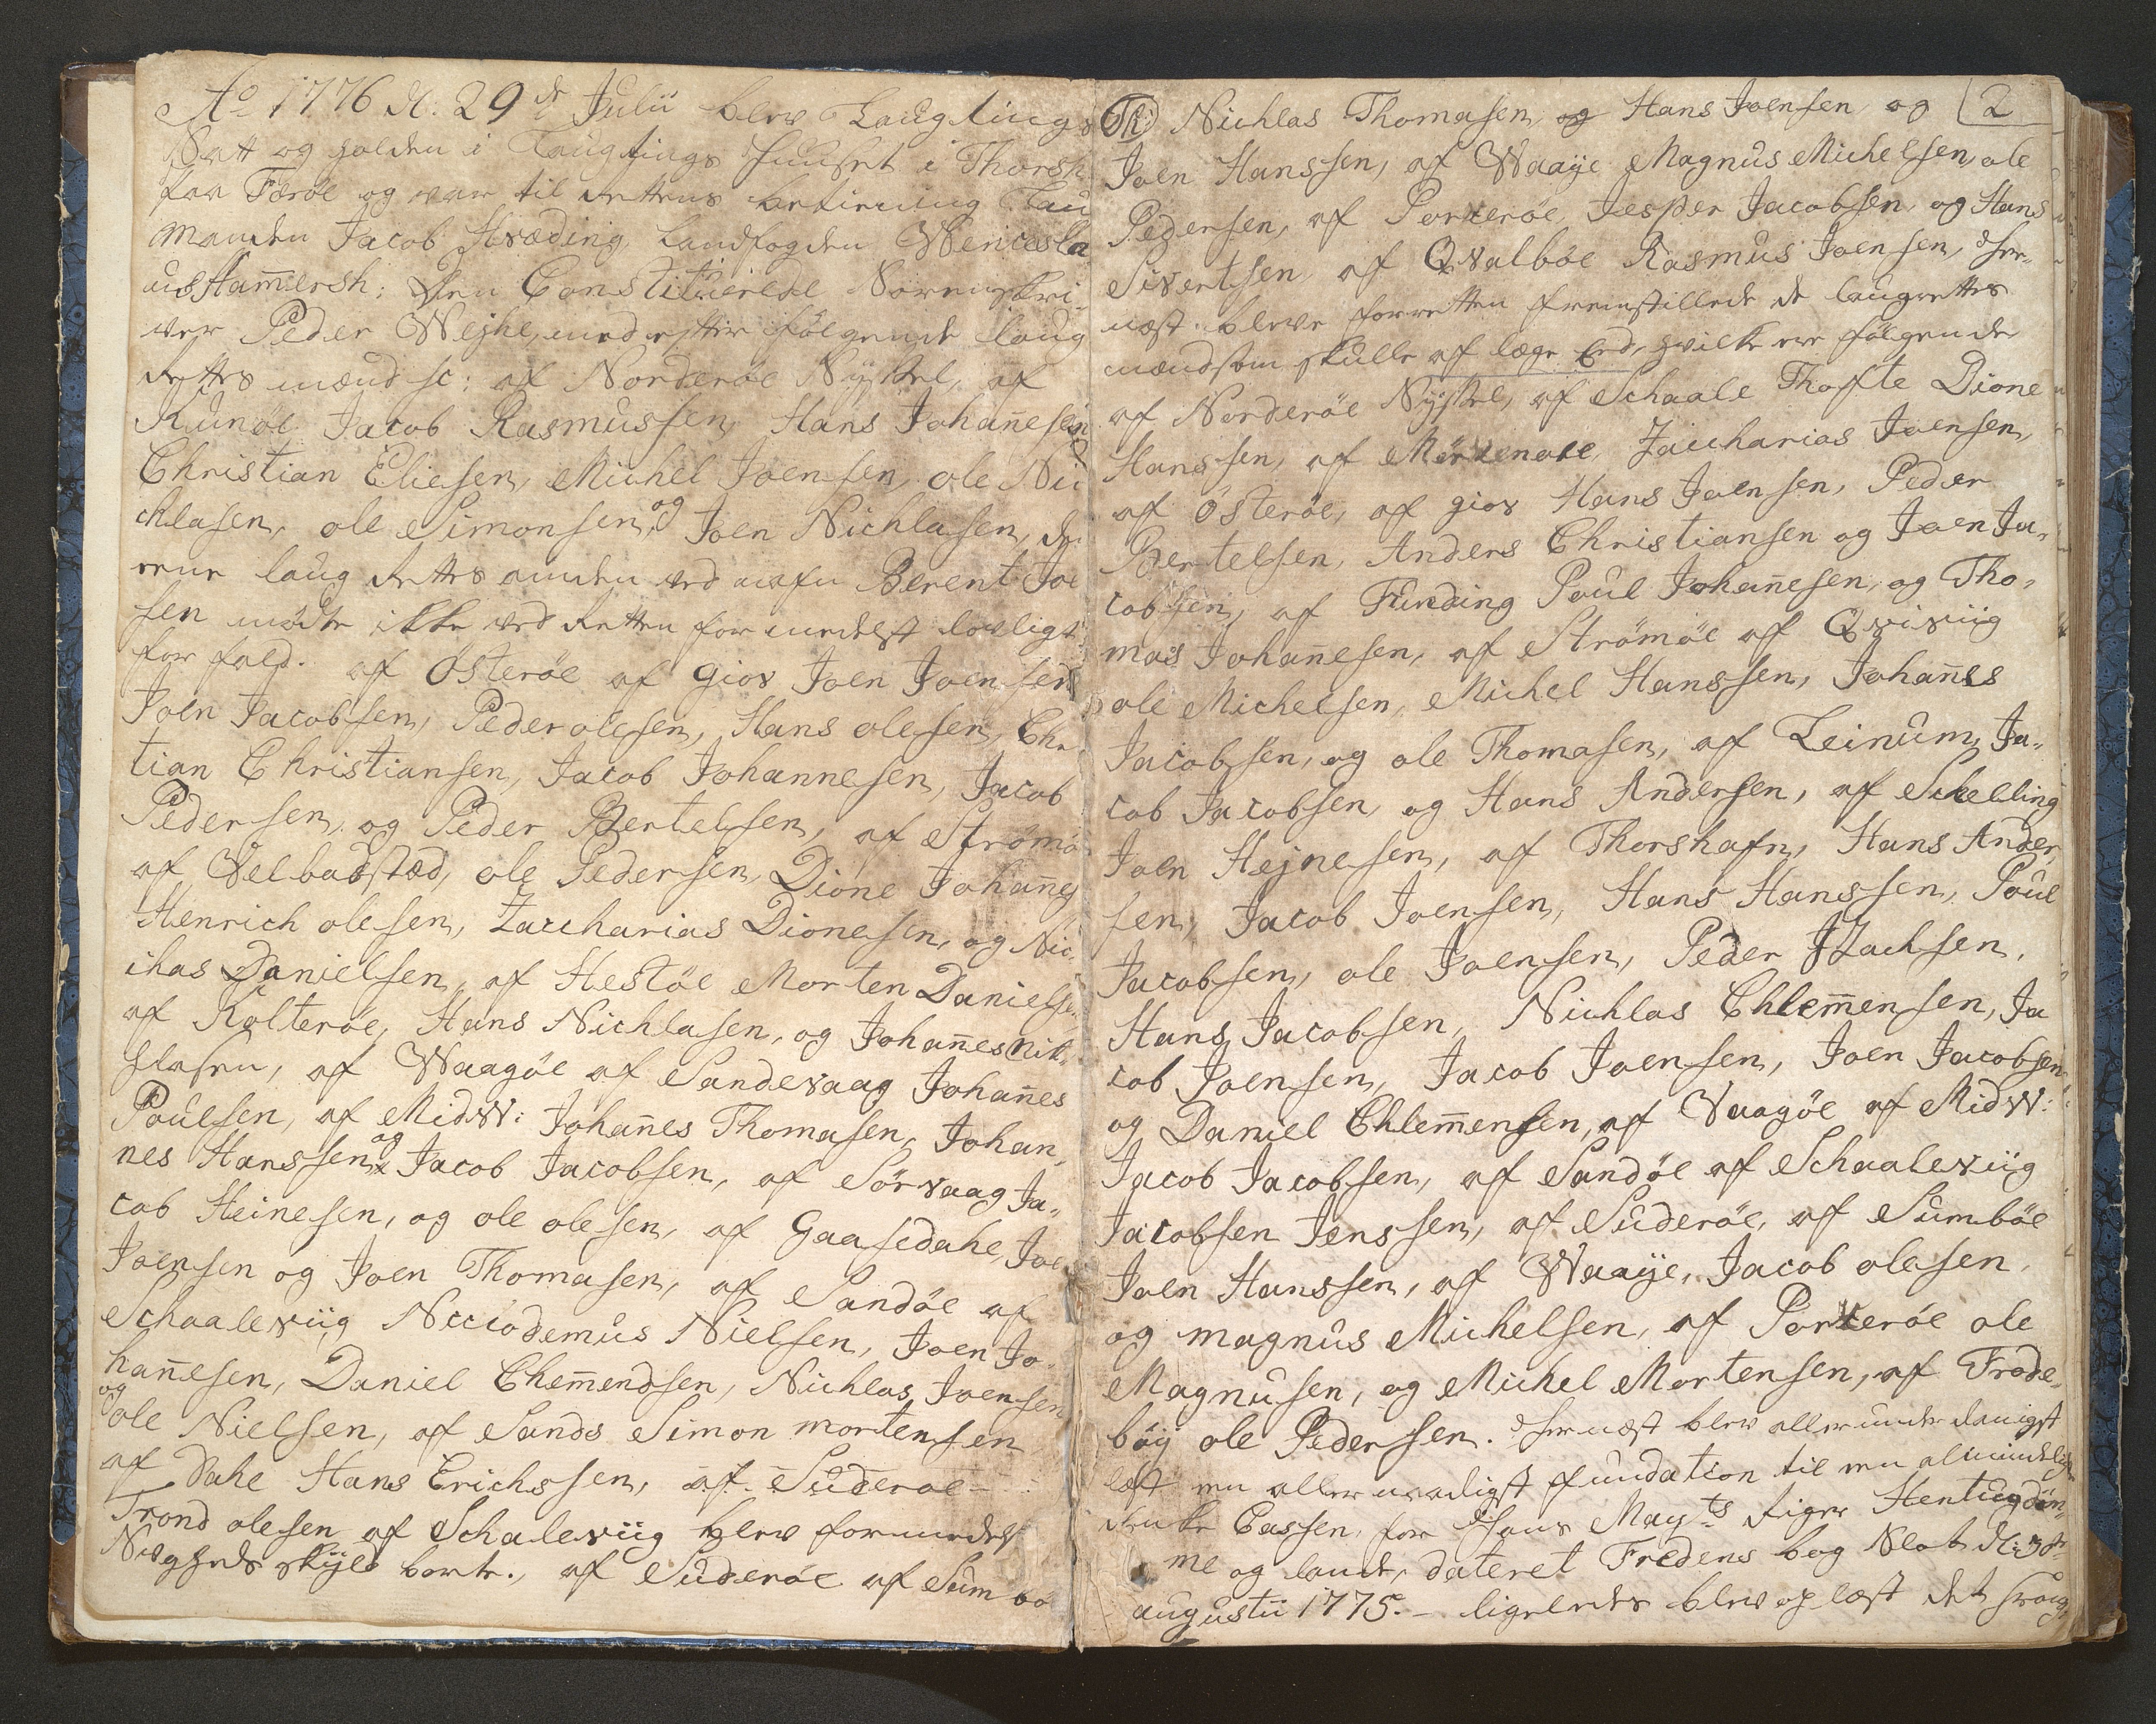 Ao 1776 d: 29de Julii blev Laugtings
Rætt og holden i Laugtings Huuset i Thorsh
paa Færøe og var til Rettens betiening Lau
manden Jacob Hveding, Landfogden Wencesla
us Ham̄ersh: Den Constitüerede Sorenskri
ver Peder Weyhe, med efter følgende laug
Rettes mænd sc: af Norderöe Syssel, af
Kunöe Jacob Rasmussen, Hans Johan̄esen
Christian Eliesen, Michel Joensen, ole Nic
chlasen, ole Simonsen, og Joen Nichlasen, den
eene laug Rettes manden ved nafn Berent Joe
sen mödte ikke ved Retten formedelst lovligt
for fald. af Österöe af giov Joen Joensen
Joen Jacobsen, Peder olesen, Hans olesen, Chr
tian Christiansen, Jacob Johannesen, Jacob
Pedersen, og Peder Bertelsen, af Strömö
af Velbadstæd, ole Pedersen, Dione Johan̄es
Henrich olesen, Zaccharias Dionesen, og Nic
chas Danielsen, af Hestöe Morten Danielse
af Kolteröe, Hans Nichlasen, og Johan̄es Nik
hlasen, af Waagöe af Sandevaag Johan̄es
Poulsen, af MidW: Johan̄es Thomasen, Johan,
nes Hanssen og Jacob Jacobsen, af Sörvaag Ja,
cob Heinesen, og ole olesen, af Gaasedahl, Joe
Joensen og Joen Thomasen, af Sandöe af
Schaaleviig Niccodemus Nielsen, Joen Jo
han̄esen, Daniel Chlem̄endsen, Nichlas Joensen
og ole Nielsen, af Sands Simon Mortensen
af Dahl Hans Erichssen, af Suderoe
Trond olesen af Schaleviig blev formedelst
Svagheds skyld borte., af Suderöe af Sum bö
Th: Nichlas Thomasen, og Hans Joensen, og 2
Joen Hanssen, af Waaye Magnus Michelsen, ole
Pedersen, af Porkeröe, Jesper Jacobsen, og Hans
Sivertsen, af Qvalböe Rasmus Joensen, Her
næst bleve forretten fremstillede de laugrettes
mænd som skulle af læge Eed, hvilke ere fölgende
af Norderöe Syssel, af Schaale Thofte Dione
Hanssen, af Mörkenore, Zaccharias Joensen,
af Österöe, af giov Hans Joensen, Peder
Bertelsen, Anders Christiansen og Joen Ja,
cobsen, af Funding Poul Johan̄esen, og Tho,
mas Johan̄esen, af Strömöe af Qviviig
ole Michelsen, Michel Hanssen, Johan̄es
Jacobsen, og ole Thomasen, af Leinum, Ja,
cob Jacobsen, og Hans Andersen, af Schelling
Joen Hejnesen, af Thorshafn, Hans Ander,
sen, Jacob Joensen, Hans Hanssen, Poul
Jacobsen, ole Joensen, Peder JZachsen,
Hans Jacobsen, Nichlas Chlem̄ensen, Ja
cob Joensen, Jacob Joensen, Joen Jacobsen
og Daniel Chlem̄ensen, af Vaagöe af MidW:
Jacob Jacobsen, af Sandöe af Schaaleviig
Jacobsen Jenssen, af Suderöe, af Sumböe
Joen Hanssen, af Waaye, Jacob olesen,
og Magnus Michelsen, af Porkeröe ole
Magnusen, og Michel Mortensen, af Frode,
böy ole Pedersen. Hernæst blev allerunderdanigst
læst en allernaadigst fundation til en almindelig
Enke Cassen, for Hans Mayts Riger Hentugdöm,
me og lande, dateret Fredens bog Slot d: 30te
augustii 1775. - ligeledes blev op læst det